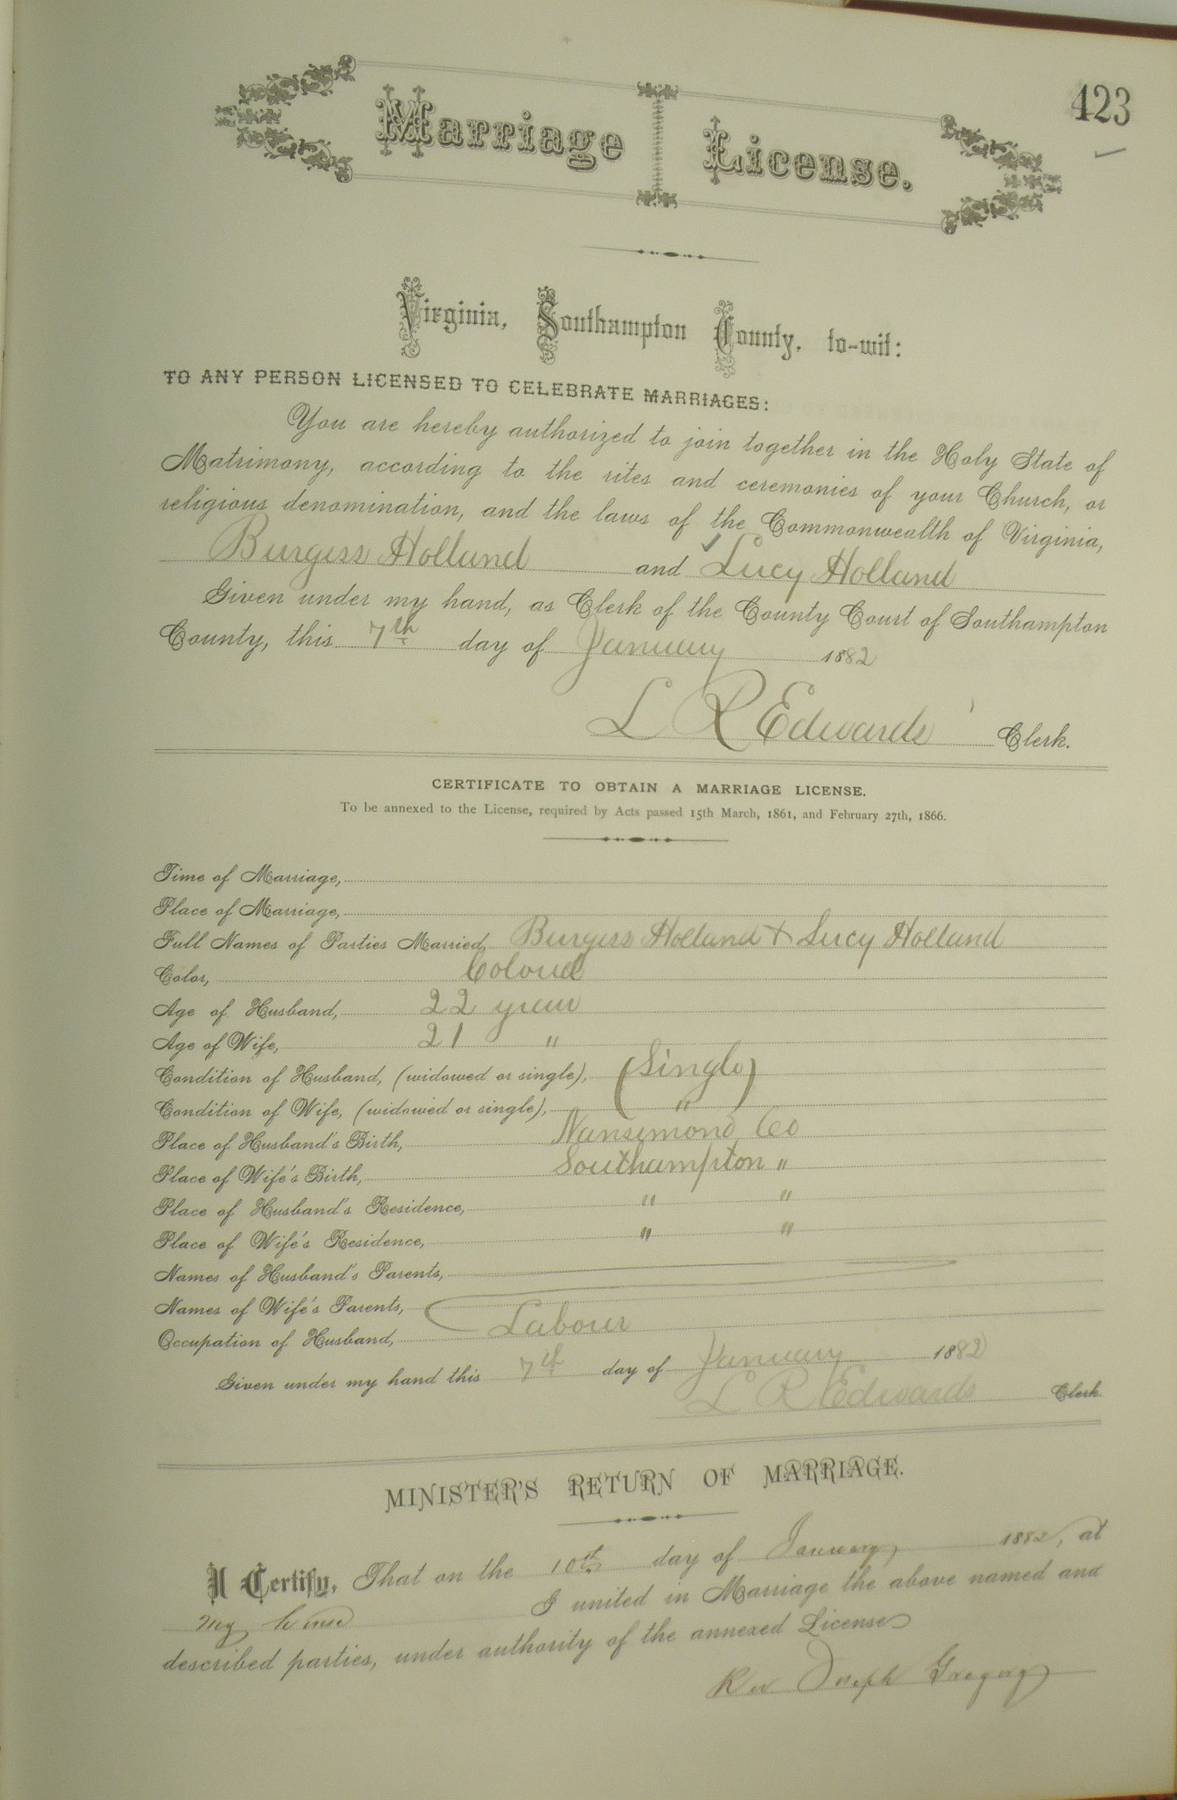 423
Marriage License.
Virginia, Southampton County, to-wit:
TO ANY PERSON LICENSED TO CELEBRATE MARRIAGES:
You are hereby authorized to join together in the Holy State of
Matrimony, according to the rites and ceremonies of your Church, or
religious denomination, and the laws of the Commonwealth of Virginia,
Burgess Holland and ✓ Lucy Holland
Given under my hand, as Clerk of the County Court of Southampton
County, this 7th day of January 1882
L R Edwards Clerk.
CERTIFICATE TO OBTAIN A MARRIAGE LICENSE.
To be annexed to the License, required by Acts passed 15th March, 1861, and February 27th, 1866.
Time of Marriage,
Place of Marriage,
Full Names of Parties Married, Burgess Holland + Lucy Holland
Color, Colored
Age of Husband, 22 years
Age of Wife, 21 "
Condition of Husband, (widowed or single), (Single)
Condition of Wife, (widowed or single), "
Place of Husband's Birth, Nansemond Co
Place of Wife's Birth, Southampton "
Place of Husband's Residence, " "
Place of Wife's Residence, " "
Names of Husband's Parents,
Names of Wife's Parents,
Occupation of Husband, Labour
Given under my hand this 7th day of January 1882
L R Edwards Clerk.
MINISTER'S RETURN OF MARRIAGE.
I Certify, That on the 10th day of January, 1882, at
my house I united in Marriage the above named and
described parties, under authority of the annexed License
Rev Joseph Gregory